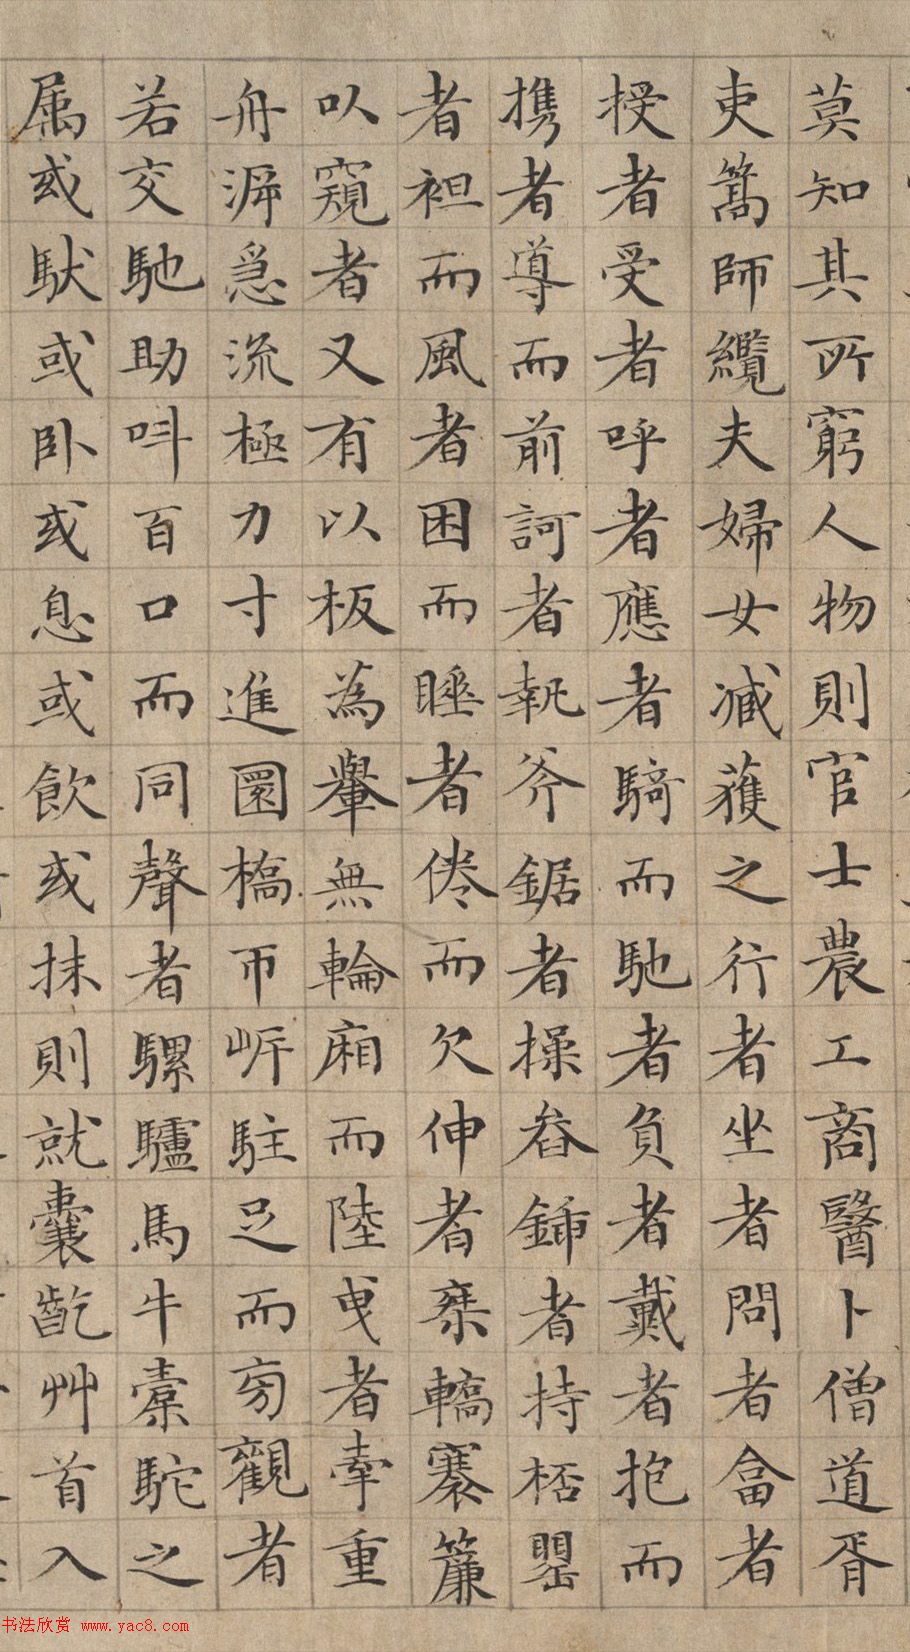 莫知其所窮人物則官士農工商醫卜僧道胥
吏篙師纜夫婦女臧獲之行者坐者問者畣者
授者受者呼者應者騎而馳者負者戴者抱而
攜者導而前訶者執斧鋸者操畚鍤者持桮罌
者袒而風者困而睡者倦而欠伸者乘轎褰簾
以窺者又有以板為轝無輪廂而陸曳者牽重
舟泝急流極力寸進圜橋帀岸駐足而旁觀者
若交馳助叫百口而同聲者騾驢馬牛橐駝之
属或馱或卧或息或飲或抹則就囊齕艸首入
书法欣赏 www.yac8.com